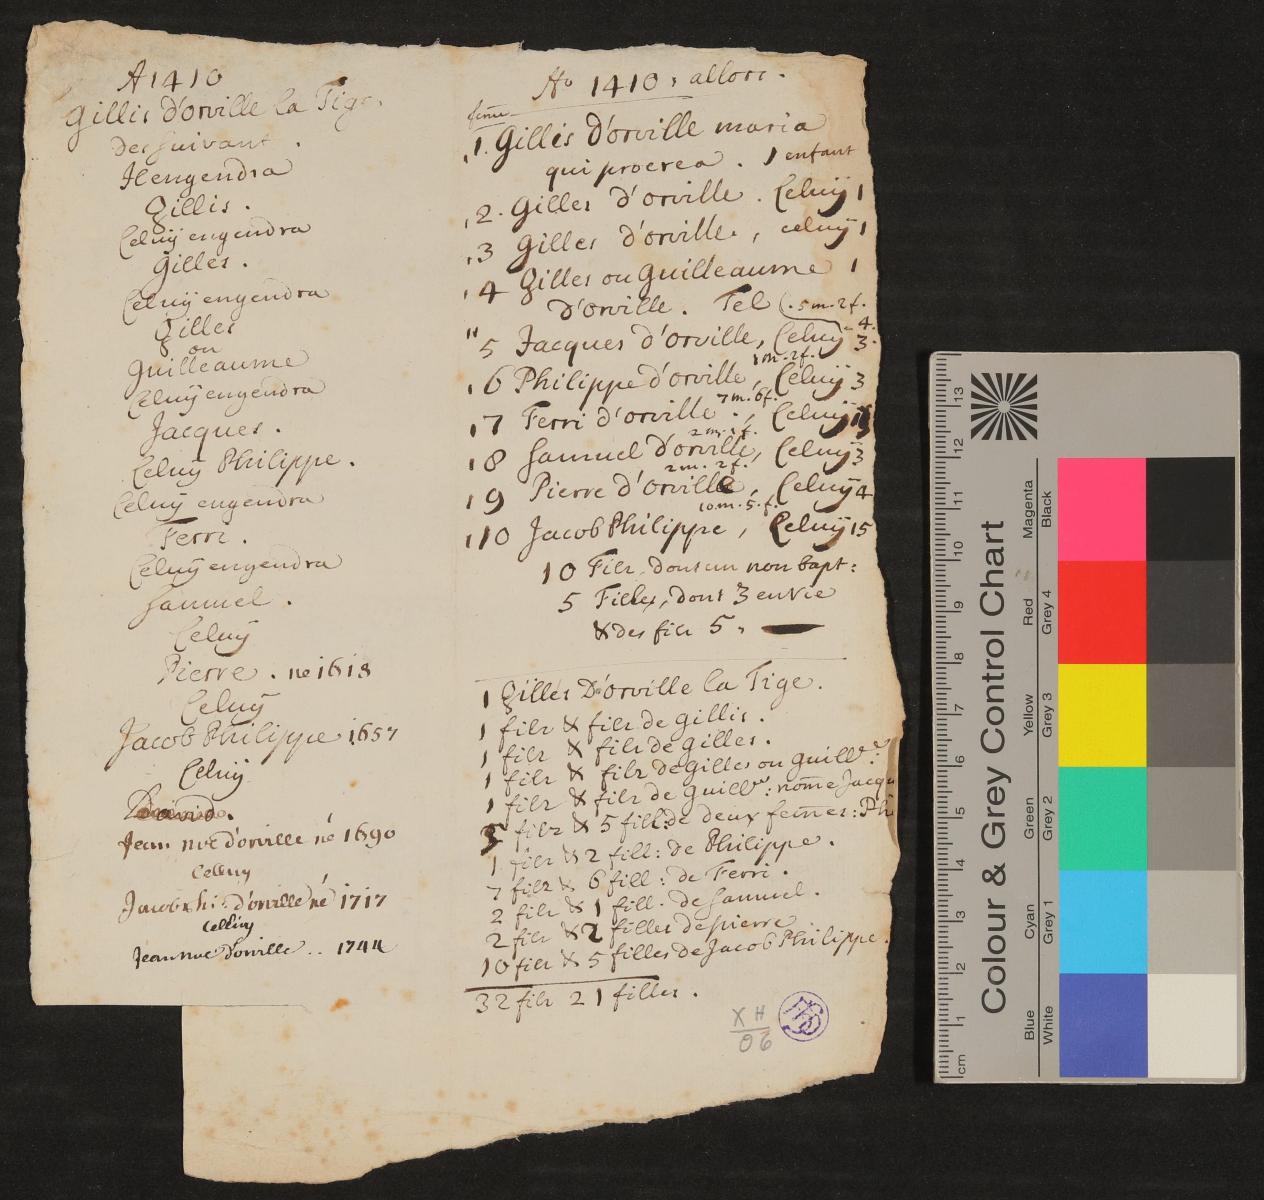 A 1410
Gillis d'orville la Tige
des suivant.
Il engendra
Gillis.
Celuÿ engendra
Gilles.
Celuÿ engendra
Gilles
ou
Guilleaume
Celuÿ engendra
Jacques.
Celuÿ Philippe.
Celuÿ engendra
Ferri.
Celuÿ engendra
Samuel.
Celuÿ
Pierre. né 1618
Celuÿ
Jacob Philippe 1657
Celuÿ
David.
Jean noé d'orville né 1690
Celluy
Jacob d'orville né 1717
Celluy
Jean noé d'orville .. 1744
Ao 1410, allors.
1. Gillis d'orville maria
qui procrea. 1 enfant
2. Gilles d'orville. Celuÿ 1
3 Gilles d'orville, celuÿ 1
4 Gilles ou Guilleaume 1
d'orville. Tel (.5 m. 2 f.
4.
5 Jacques d'orville, Celuÿ 3.
1 m. 2 f.
6 Philippe d'orville, Celuÿ 3
7 m. 6 f.
7 Ferri d'orville., Celuÿ 13
2 m. 1 f.
8 Samuel d'orville, Celuÿ 3
2 m. 2 f.
9 Pierre d'orville, Celuÿ 4
10 m. 5. f.
10 Jacob Philippe, Celuÿ 15
10 Fils, dont un non bapt:
5 Filles, dont 3 en vie
& des fils 5,
1 Gilles D'orville la Tige.
1 fils & fils de gillis.
1 fils & fils de gilles.
1 fils & fils de gilles ou guill:
1 fils & fils de guill: nomẽ Jacqu
5 fils & 5 fill: de deux fem̃es: Ph
1 fils & 2 fill: de Philippe.
7 fils & 6 fill: de Ferri.
2 fils & 1 fill: de Samuel.
2 fils & 2 filles de pierre
10 fils & 5 filles de Jacob Philippe.
32 fils 21 filles.
XH
06
Colour & Grey Control Chart
Blue Cyan Green Yellow Red Magenta
White Grey 1 Grey 2 Grey 3 Grey 4 Black
cm 1 2 3 4 5 6 7 8 9 10 11 12 13